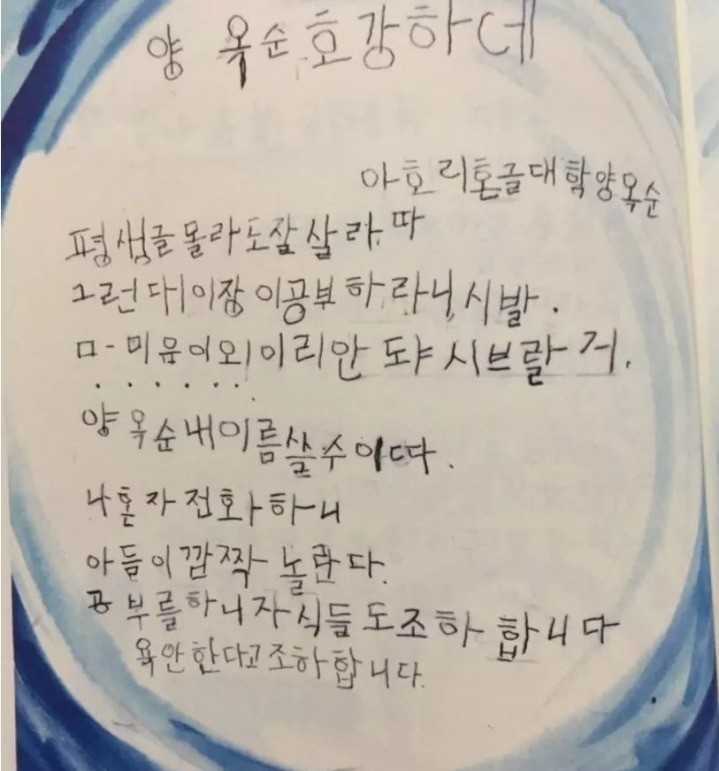 양 옥순 호강하데
아호리 흔글대학 양옥순
평생글몰라도잘 살라따
그런대이장이공부 하라니 시발.
ㅁ- 미유이외이리안 도야 시브랄 거.
......
양옥순내이름쓸수이따.
나혼자전화하니
아들이깜짝 놀란다.
공부를하니자식들도조하 합니다
욕안한다고조하합니다.